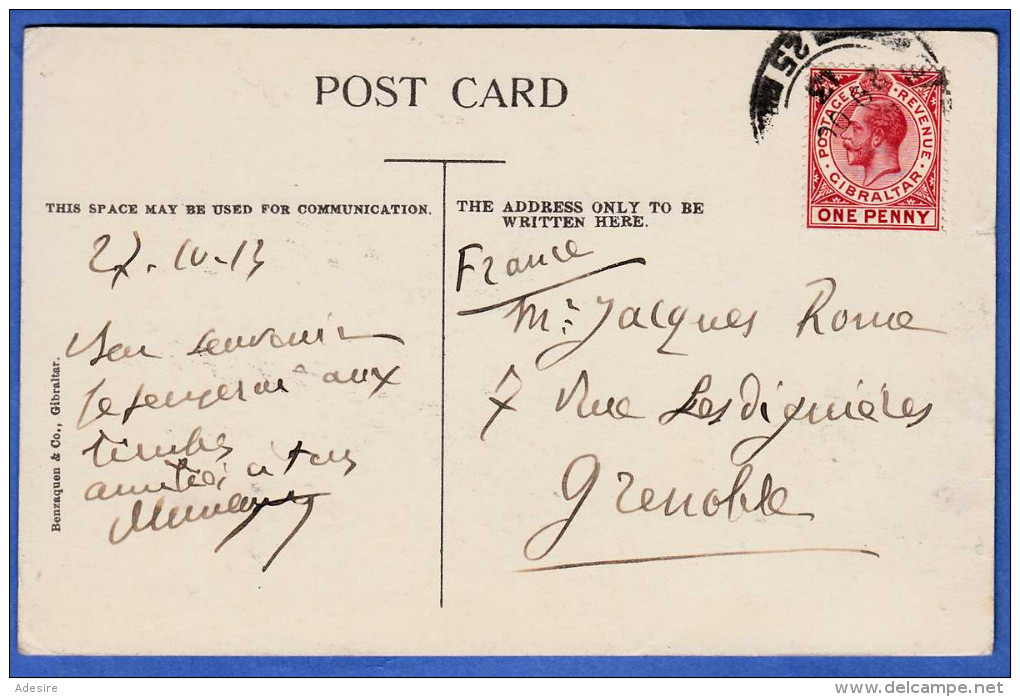 POST CARD
THIS SPACE MAY BE USED FOR COMMUNICATION.
THE ADDRESS ONLY TO BE
WRITTEN HERE.
27. IV. 13
Bon souvenir
Je songerai aux
timbres
amitiés à tous
France
Mr: Jacques Rome
7 Rue Lesdiguières
Grenoble
Benzaquen & Co., Gibraltar.
25
13
POSTAGE & REVENUE
GIBRALTAR
ONE PENNY
Adesire
delcampe.net